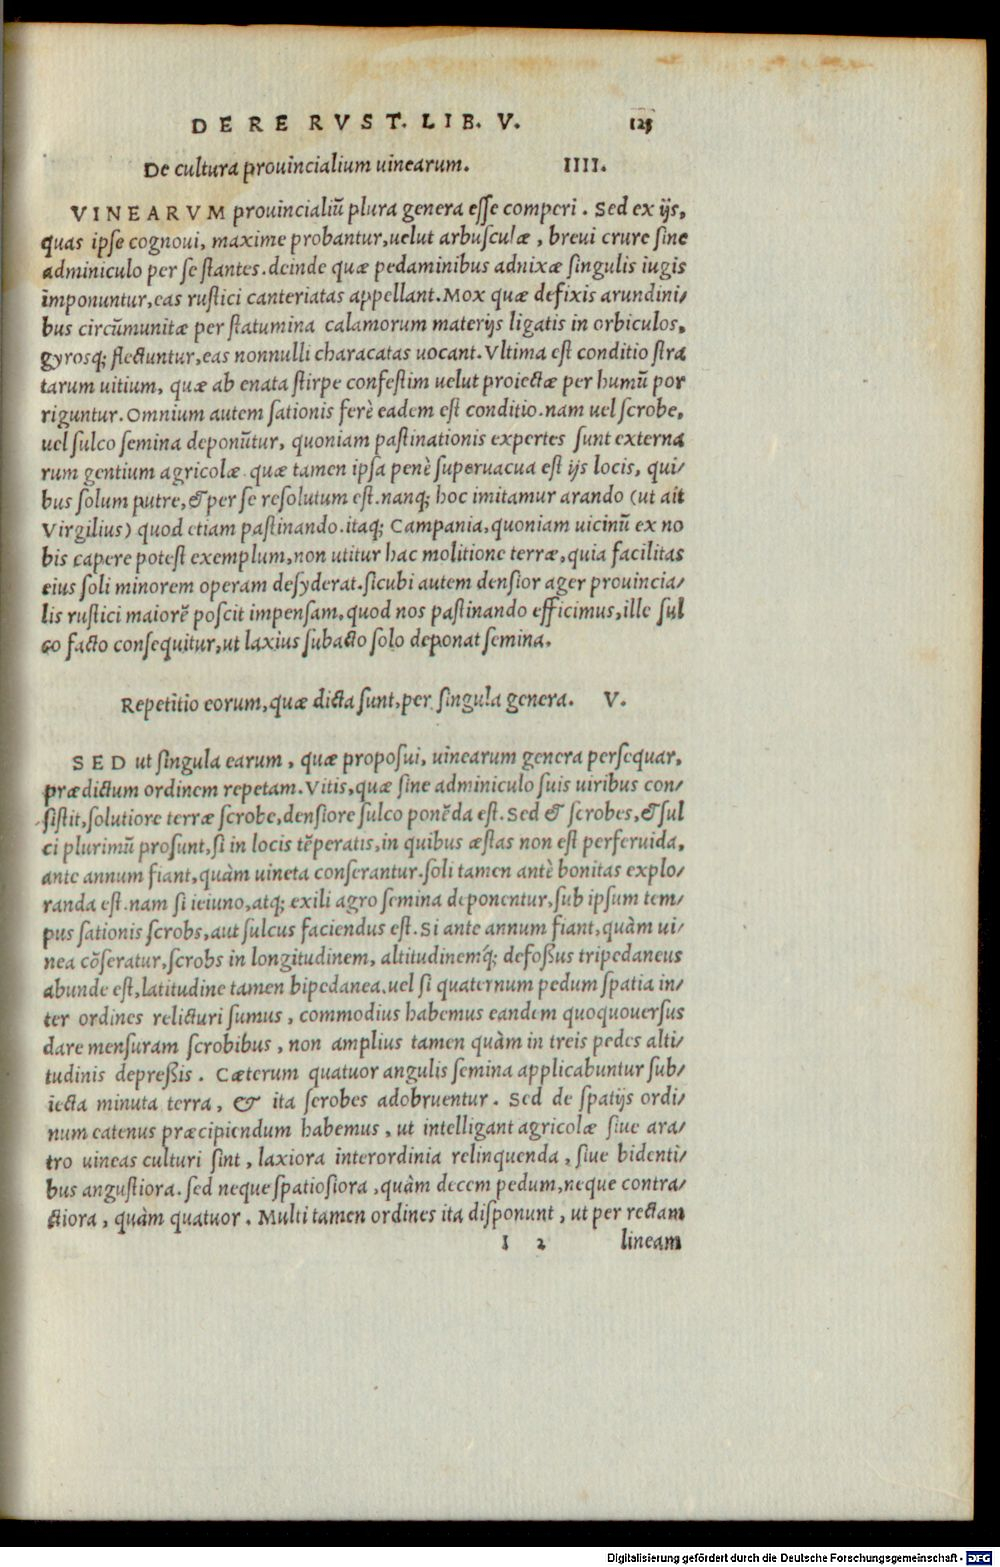 DE RE RVST. LIB. V. 125
De cultura prouincialium uinearum. IIII.
VINEARVM prouincialiũ plura genera esse comperi. Sed ex ijs,
quas ipse cognoui, maxime probantur, uelut arbusculæ, breui crure sine
adminiculo per se stantes. deinde quæ pedaminibus adnixæ singulis iugis
imponuntur, eas rustici canteriatas appellant. Mox quæ defixis arundini/
bus circũmunitæ per statumina calamorum materijs ligatis in orbiculos,
gyrosq; flectuntur, eas nonnulli characatas uocant. Vltima est conditio stra
tarum uitium, quæ ab enata stirpe confestim uelut proiectæ per humũ por
riguntur. Omnium autem sationis ferè eadem est conditio. nam uel scrobe,
uel sulco semina deponũtur, quoniam pastinationis expertes sunt externa
rum gentium agricolæ. quæ tamen ipsa penè superuacua est ijs locis, qui/
bus solum putre, & per se resolutum est. nanq; hoc imitamur arando (ut ait
Virgilius) quod etiam pastinando. itaq; Campania, quoniam uicinũ ex no
bis capere potest exemplum, non utitur hac molitione terræ, quia facilitas
eius soli minorem operam desyderat. sicubi autem densior ager prouincia/
lis rustici maiorẽ poscit impensam, quod nos pastinando efficimus, ille sul
co facto consequitur, ut laxius subacto solo deponat semina.
Repetitio eorum, quæ dicta sunt, per singula genera. V.
SED ut singula earum, quæ proposui, uinearum genera persequar,
prædictum ordinem repetam. Vitis, quæ sine adminiculo suis uiribus con/
sistit, solutiore terræ scrobe, densiore sulco ponẽda est. Sed & scrobes, & sul
ci plurimũ prosunt, si in locis tẽperatis, in quibus æstas non est perferuida,
ante annum fiant, quàm uineta conserantur. soli tamen antè bonitas explo/
randa est. nam si ieiuno, atq; exili agro semina deponentur, sub ipsum tem/
pus sationis scrobs, aut sulcus faciendus est. Si ante annum fiant, quàm ui/
nea cõseratur, scrobs in longitudinem, altitudinemq́; defoßus tripedaneus
abunde est, latitudine tamen bipedanea. uel si quaternum pedum spatia in/
ter ordines relicturi sumus, commodius habemus eandem quoquouersus
dare mensuram scrobibus, non amplius tamen quàm in treis pedes alti/
tudinis depreßis. Cæterum quatuor angulis semina applicabuntur sub/
iecta minuta terra, & ita scrobes adobruentur. Sed de spatijs ordi/
num eatenus præcipiendum habemus, ut intelligant agricolæ siue ara/
tro uineas culturi sint, laxiora interordinia relinquenda, siue bidenti/
bus angustiora. sed neque spatiosiora, quàm decem pedum, neque contra/
ctiora, quàm quatuor. Multi tamen ordines ita disponunt, ut per rectam
I 2 lineam
Digitalisierung gefördert durch die Deutsche Forschungsgemeinschaft - DFG